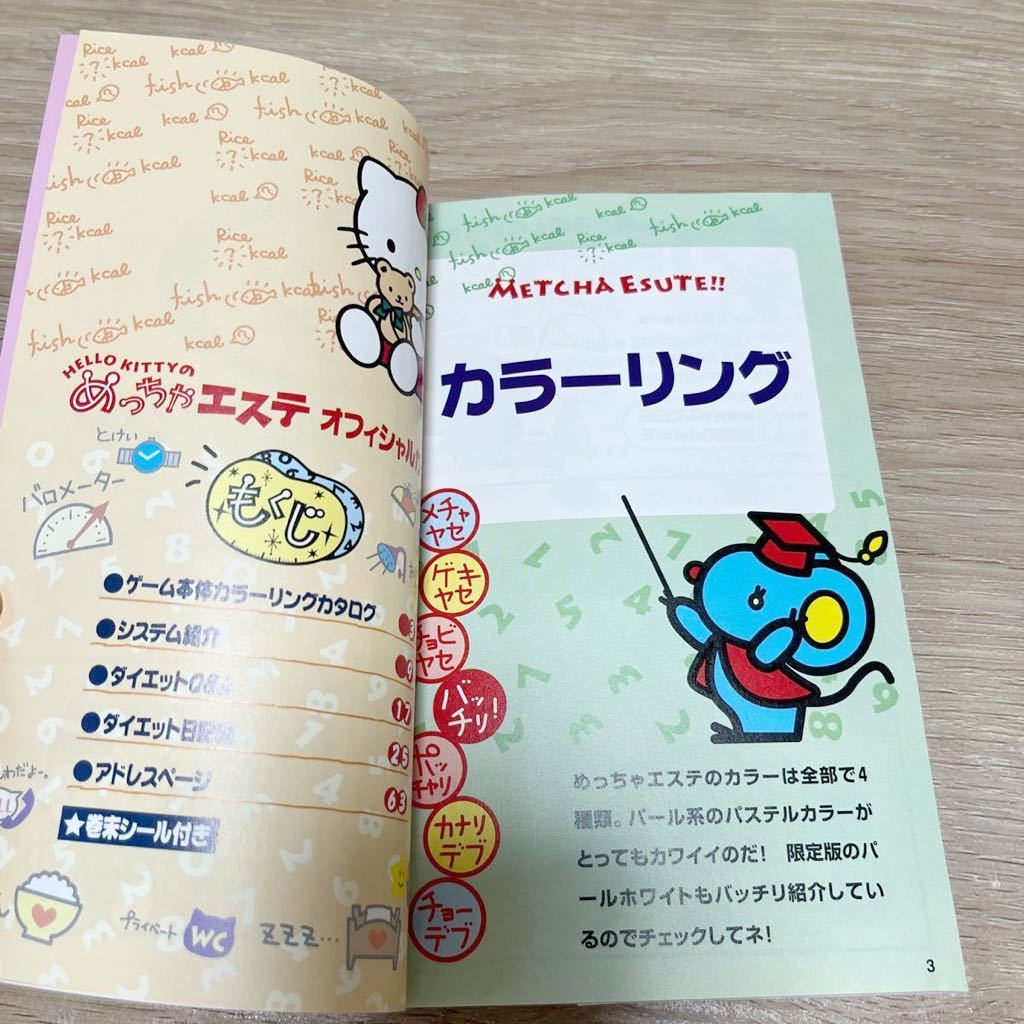 Rice
?
kcal
kcal
fish
kcal
kcal
Rice
?
kcal
kcal
fish
kcal
Rice
?
kcal
fish
kcal
kcal
Rice
?
kcal
Rice
?
kcal
fish
kcal
fish
kcal
fish
kcal
kcal
HELLO KITTYの
めっちゃエステ オフィシャル
とけい
バロメーター
もくじ
●ゲーム本体カラーリングカタログ 3
●システム紹介 9
●ダイエットQ&A 17
●ダイエット日記帳 25
●アドレスページ 63
★巻末シール付き
わだよー。
プライベート
WC
ZZZ...
fish
kcal
kcal
fish
kcal
fish
kcal
Rice
?
kcal
kcal
METCHA ESUTE!!
カラーリング
メチャ
ヤセ
ゲキ
ヤセ
チョビ
ヤセ
バッ
チリ!
ポッ
チャリ
カナリ
デブ
チョー
デブ
めっちゃエステのカラーは全部で4
種類。パール系のパステルカラーが
とってもカワイイのだ! 限定版のパ
ールホワイトもバッチリ紹介してい
るのでチェックしてネ!
3